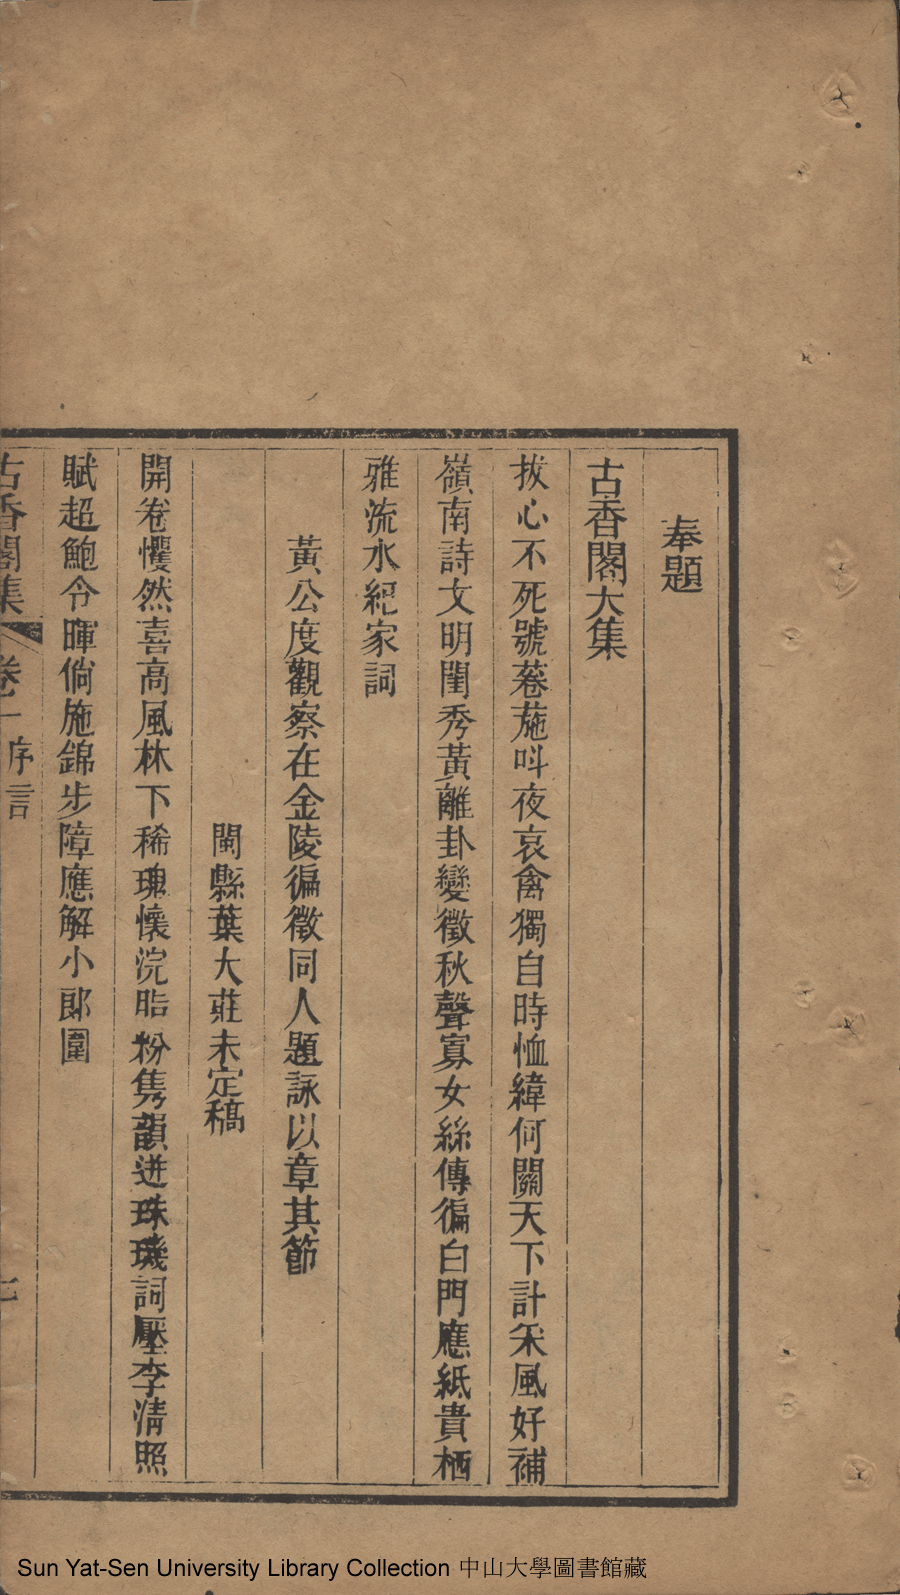 奉題
古香閣大集
拔心不死號菤葹呌夜哀禽獨自時恤緯何關天下計釆風好補
嶺南詩文明閨秀黃離卦變徵秋聲寡女絲傳徧白門應紙貴栖
雅流水絕家詞
黃公度觀察在金陵徧徵同人題詠以章其節
閩縣葉大莊未定稿
開卷懼然喜高風林下稀瑰懷浣脂粉雋韻迸珠璣詞壓李清照
賦超鮑令暉倘施錦步障應解小郎圍
古香閣集 卷一序言 七
Sun Yat-Sen University Library Collection 中山大學圖書館藏